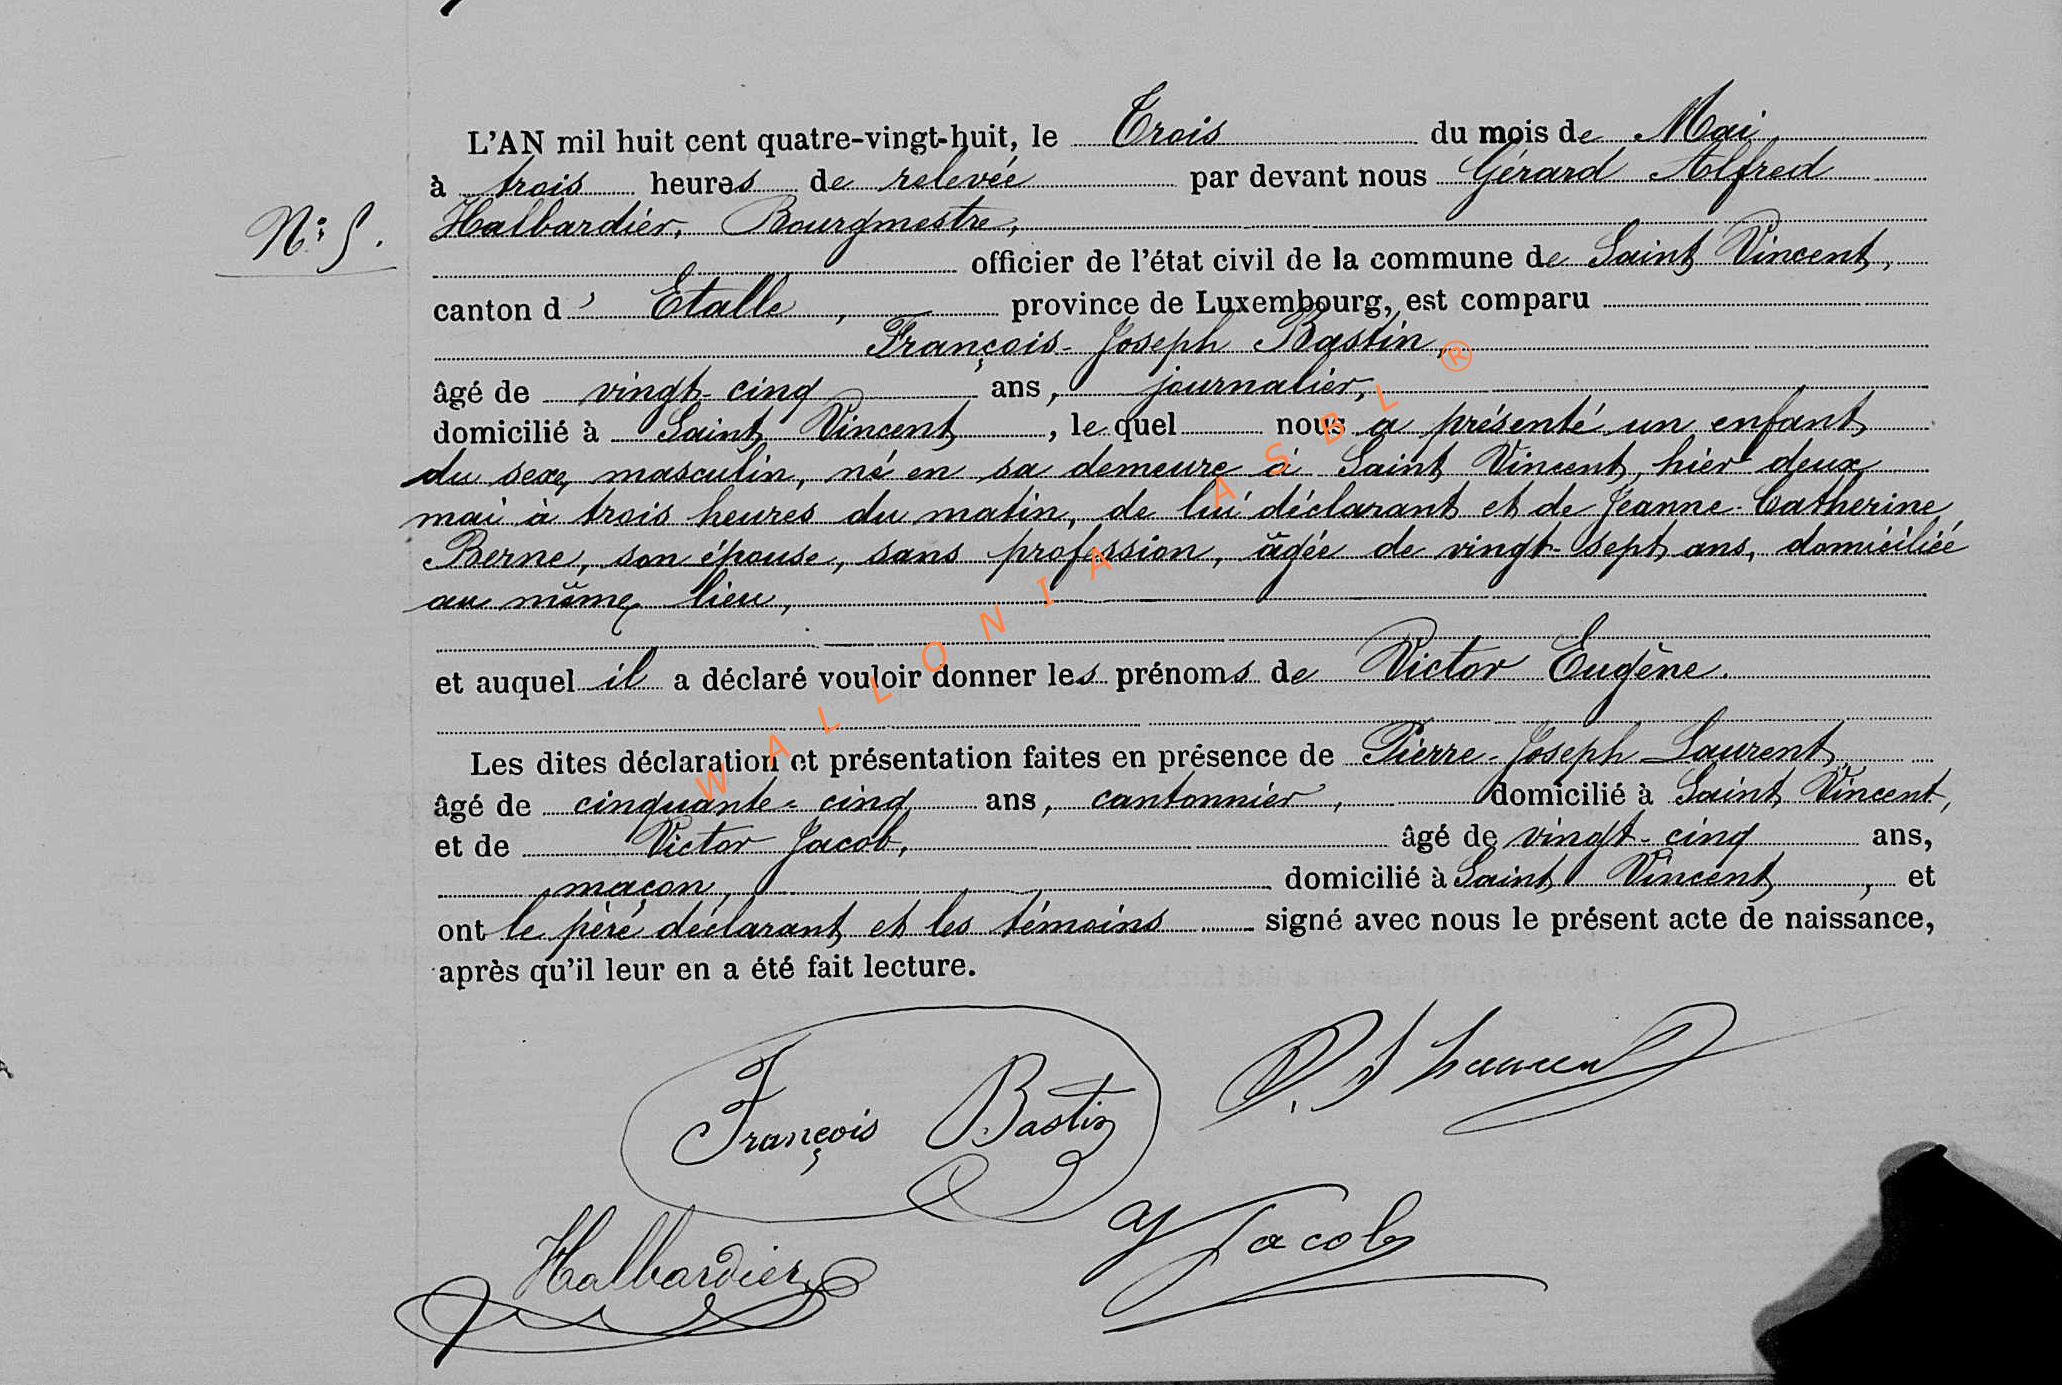 L'AN mil huit cent quatre-vingt-huit, le Trois du mois de Mai,
à trois heures de relevée par devant nous Gérard Alfred
Halbardier, Bourgmestre,
N° 5.
officier de l'état civil de la commune de Saint Vincent,
canton d'Etalle, province de Luxembourg, est comparu
François-Joseph Bastin,
âgé de vingt-cinq ans, journalier,
domicilié à Saint Vincent, lequel nous a présenté un enfant
du sexe masculin, né en sa demeure à Saint Vincent, hier deux
mai à trois heures du matin, de lui déclarant et de Jeanne-Catherine
Berne, son épouse, sans profession, âgée de vingt-sept ans, domiciliée
au même lieu,
et auquel il a déclaré vouloir donner les prénoms de Victor Eugène.
Les dites déclaration et présentation faites en présence de Pierre-Joseph Laurent
âgé de cinquante-cinq ans, cantonnier, domicilié à Saint Vincent,
et de Victor Jacob, âgé de vingt-cinq ans,
maçon, domicilié à Saint Vincent, et
ont le père déclarant et les témoins signé avec nous le présent acte de naissance,
après qu'il leur en a été fait lecture.
François Bastin
P. J Laurent
Halbardier
V Jacob
WALLONIA ASBL ®